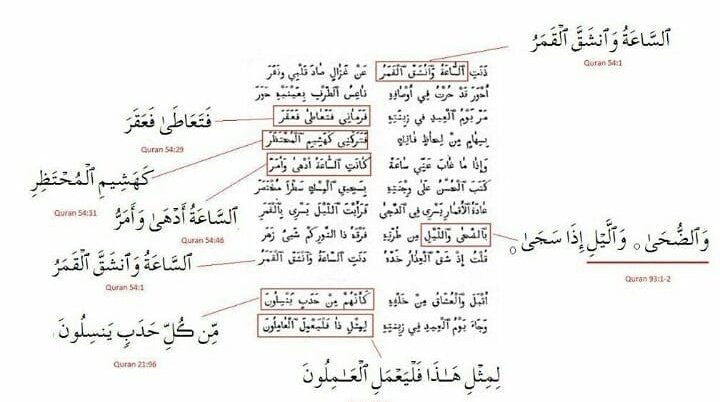 ٱلسَّاعَةُ وَٱنشَقَّ ٱلْقَمَرُ
Quran 54:1
دَنَتِ السَّاعَةُ وَانْشَقَّ القَمَرُ عَنْ غَزَالٍ صَادَ قَلْبِي وَنَفَرَ
أَحْوَرٌ قَدْ حِرْتُ فِي أَوْصَافِهِ نَاعِسُ الطَّرْفِ بِعَيْنَيْهِ حَوَرٌ
مَرَّ يَوْمَ العِيدِ فِي زِينَتِهِ فَرَمَانِي فَتَعَاطَى فَعَقَرَ
بِسِهَامٍ مِنْ لِحَاظٍ فَتَرَكَنِي كَهَشِيمِ المُحْتَظِرِ
وَإِذَا مَا غَابَ عَنِّي سَاعَةً كَانَتِ السَّاعَةُ أَدْهَى وَأَمَرَّ
كَتَبَ الحُسْنُ عَلَى وَجْنَتِهِ بِسَحِيقِ المِسْكِ سَطْرًا مُخْتَصَرَ
عَادَةُ الأَقْمَارِ تَسْرِي فِي الدُّجَى فَرَأَيْتُ اللَّيْلَ يَسْرِي بِالقَمَرِ
بِالضُّحَى وَاللَّيْلِ مِنْ طُرَّتِهِ
قُلْتُ إِذْ شَقَّ العِذَارُ خَدَّهُ دَنَتِ السَّاعَةُ وَانْشَقَّ القَمَرُ
أَقْبَلَ وَالعُشَّاقُ مِنْ خَلْفِهِ كَأَنَّهُمْ مِنْ حَدَبٍ يَنْسِلُونَ
وَجَاءَ يَوْمَ العِيدِ فِي زِينَتِهِ لِمِثْلِ ذَا فَلْيَعْمَلِ العَامِلُونَ
فَتَعَاطَىٰ فَعَقَرَ
Quran 54:29
كَهَشِيمِ ٱلْمُحْتَظِرِ
Quran 54:31
ٱلسَّاعَةُ أَدْهَىٰ وَأَمَرُّ
Quran 54:46
ٱلسَّاعَةُ وَٱنشَقَّ ٱلْقَمَرُ
Quran 54:1
وَٱلضُّحَىٰ ۝ وَٱلَّيْلِ إِذَا سَجَىٰ ۝
Quran 93:1-2
مِّن كُلِّ حَدَبٍ يَنسِلُونَ
Quran 21:96
لِمِثْلِ هَـٰذَا فَلْيَعْمَلِ ٱلْعَـٰمِلُونَ